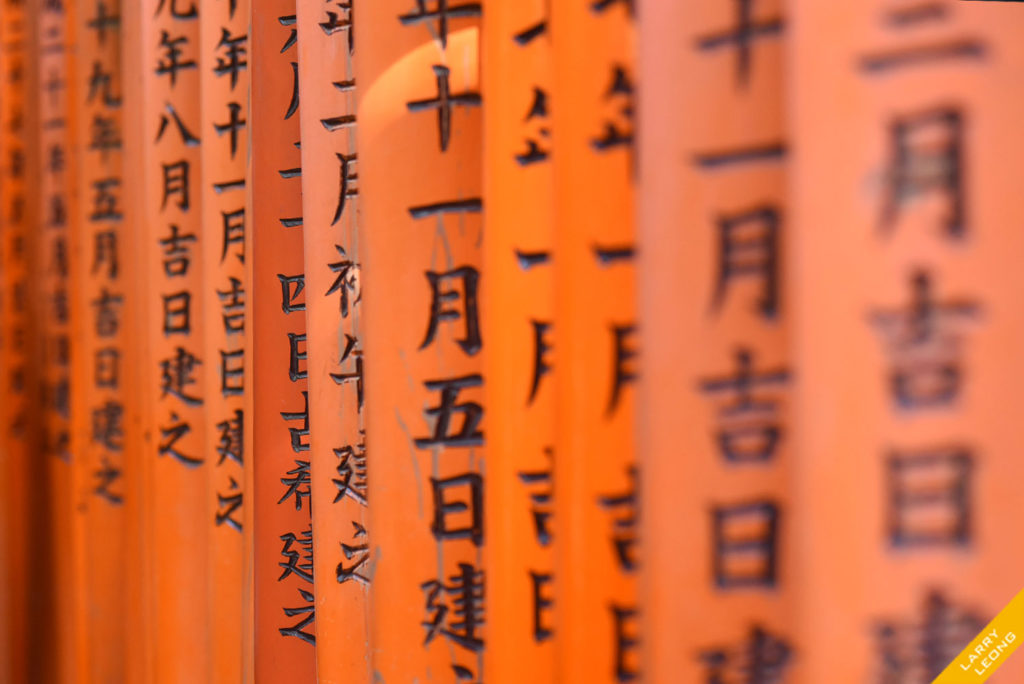 月吉日建
十一月吉日建
年一月吉日
一月吉日
年十一月五日建
年二月初午建之
四日古希建之
年十一月吉日建之
元年八月吉日建之
十九年五月吉日建之
LARRY
LEONG